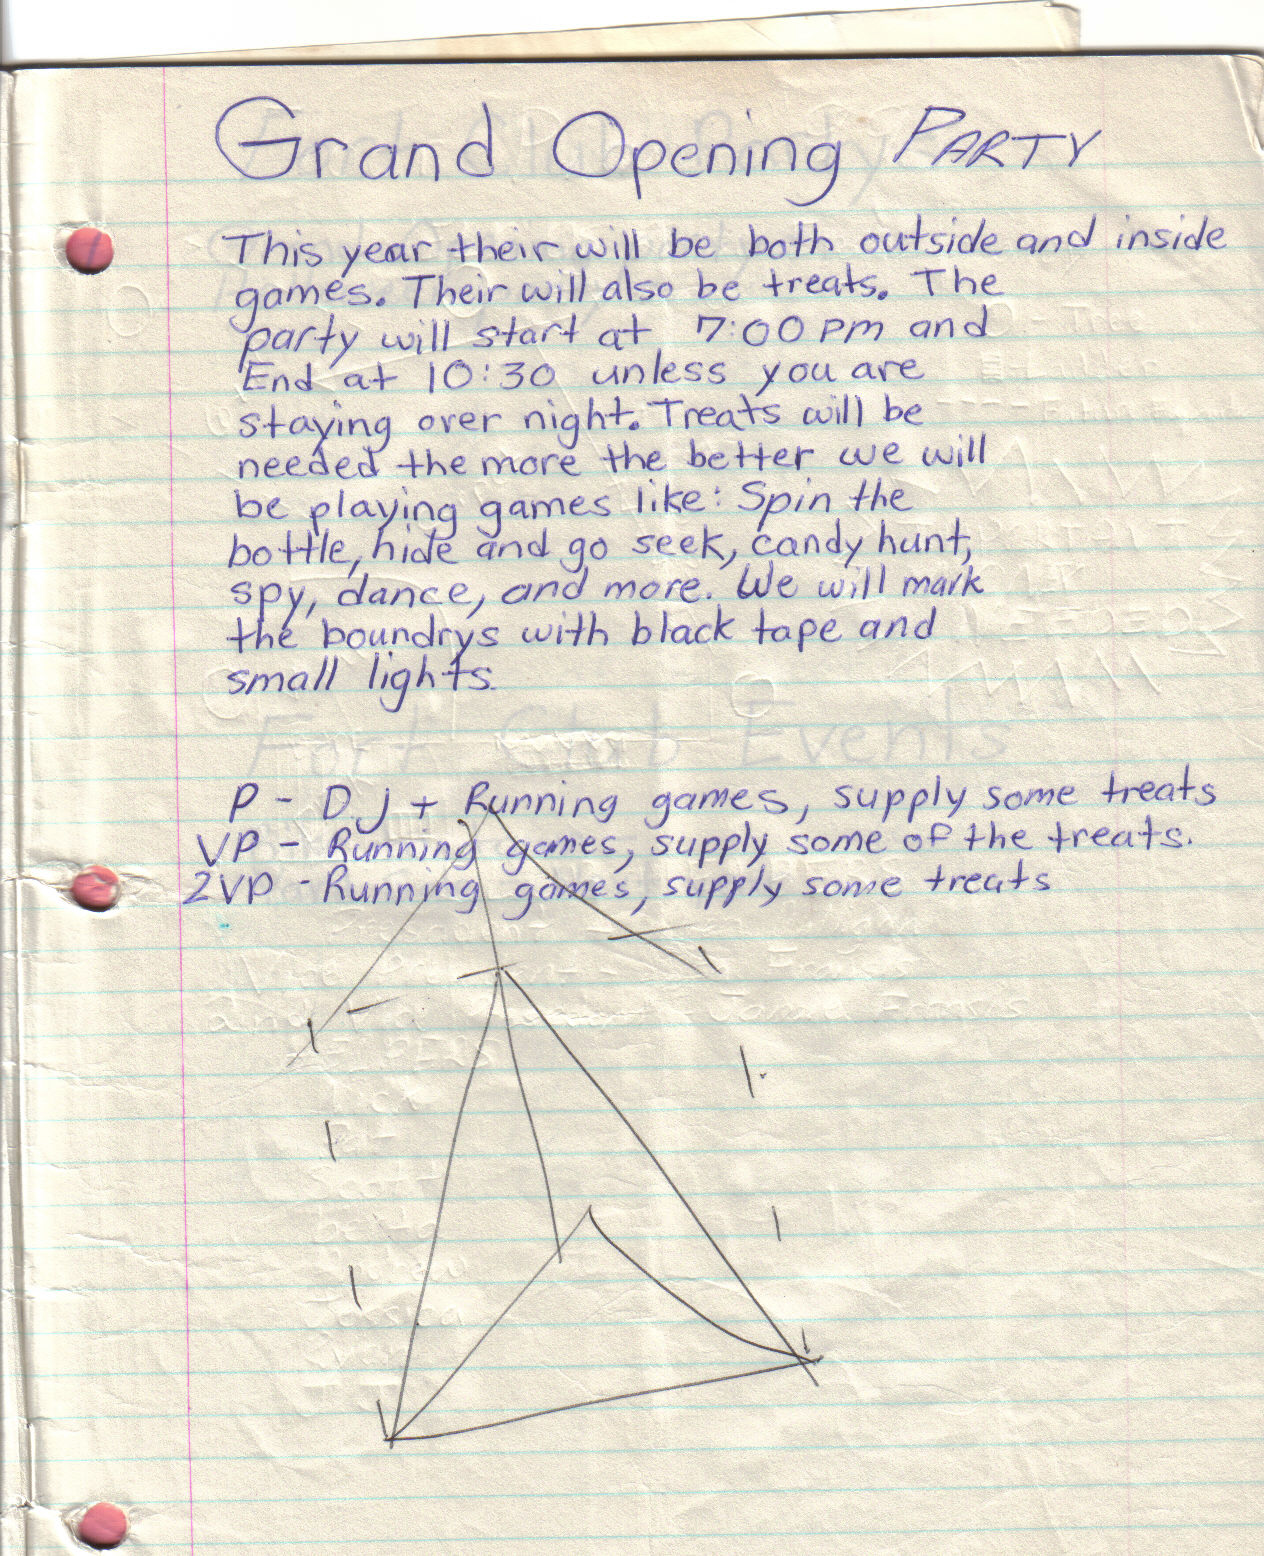 Grand Opening PARTY
This year their will be both outside and inside
games. Their will also be treats. The
party will start at 7:00 pm and
End at 10:30 unless you are
staying over night. Treats will be
needed the more the better we will
be playing games like: Spin the
bottle, hide and go seek, candy hunt,
spy, dance, and more. We will mark
the boundrys with black tape and
small lights.
Fort Club Events
P - DJ + Running games, supply some treats
VP - Running games, supply some of the treats.
2VP - Running games, supply some treats